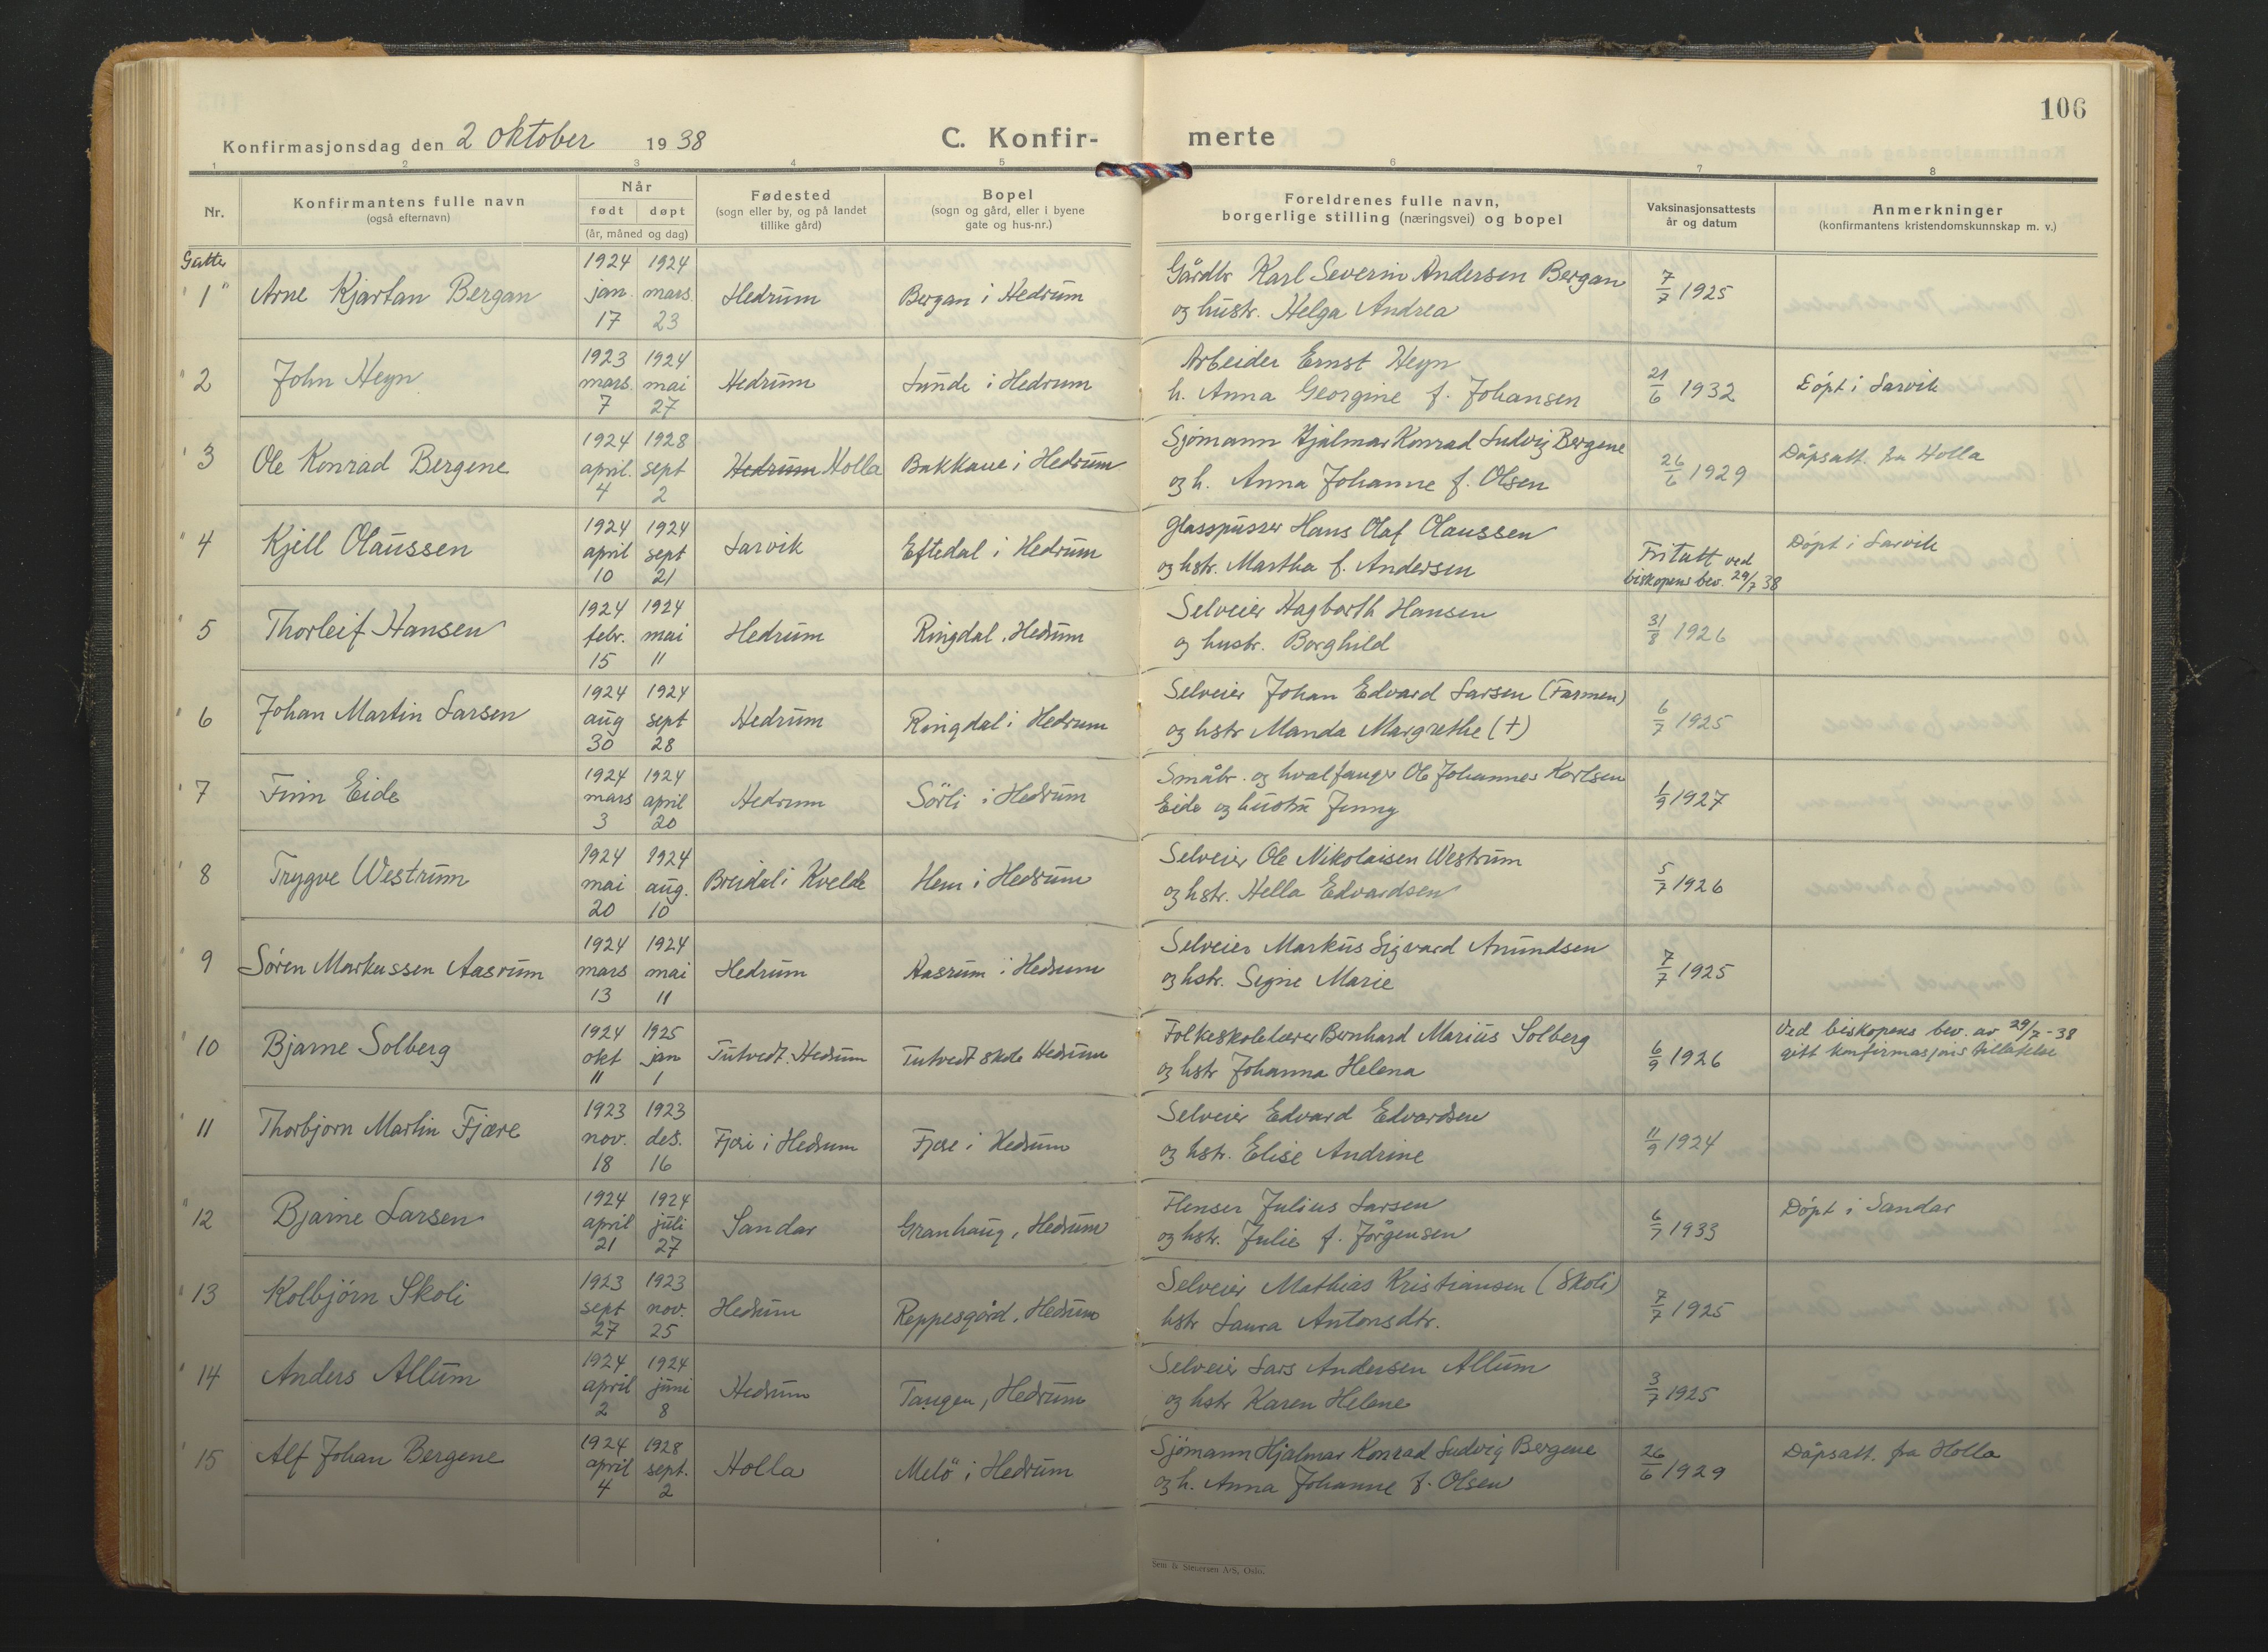 106
Konfirmasjonsdag den 2 oktober 1938
C. Konfir- merte
1 2 3 4 5 6 7 8
Nr.
Konfirmantens fulle navn
(også efternavn)
Når
født døpt
(år, måned og dag)
Fødested
(sogn eller by, og på landet
tillike gård)
Bopel
(sogn og gård, eller i byene
gate og hus-nr.)
Foreldrenes fulle navn,
borgerlige stilling (næringsvei) og bopel
Vaksinasjonsattests
år og datum
Anmerkninger
(konfirmantens kristendomskunnskap m. v.)
Gutter
1 Arne Kjartan Bergan
1924 jan. 17
1924 mars. 23
Hedrum
Bergan i Hedrum
Gårdbr Karl Severin Andersen Bergan
og hustr. Helga Andrea
7/7 1925
2 John Heyn
1923 mars. 7
1924 mai 27
Hedrum
Lunde i Hedrum
Arbeider Ernst Heyn
h. Anna Georgine f. Johansen
21/6 1932
Døpt i Larvik
3 Ole Konrad Bergene
1924 april. 4
1928 sept 2
Hedrum Holla
Bakkane i Hedrum
Sjömann Hjalmar Konrad Ludvig Bergene
og h. Anna Johanne f. Olsen
26/6 1929
Dåpsatt. fra Holla
4 Kjell Olaussen
1924 april 10
1924 sept 21
Larvik
Eftedal i Hedrum
Glasspusser Hans Olaf Olaussen
og hstr. Martha f. Andersen
Fritatt ved
biskopens bev. 29/7 38
Döpt i Larvik
5 Thorleif Hansen
1924 febr. 15
1924 mai 11
Hedrum
Ringdal, Hedrum
Selveier Hagbarth Hansen
og hustr. Borghild
31/8 1926
6 Johan Martin Larsen
1924 aug 30
1924 sept 28
Hedrum
Ringdal i Hedrum
Selveier Johan Edvard Larsen (Farmen)
og hstr Manda Margrethe (+)
6/7 1925
7 Finn Eide
1924 mars 3
1924 april 20
Hedrum
Sörli i Hedrum
Småbr. og hvalfanger Ole Johannes Karlsen
Eide og hustru Jenny
1/9 1927
8 Trygve Westrum
1924 mai 20
1924 aug. 10
Breidal i Kvelde
Hem i Hedrum
Selveier Ole Nikolaisen Westrum
og hstr. Hella Edvardsen
5/7 1926
9 Søren Markussen Aasrum
1924 mars 13
1924 mai 11
Hedrum
Aasrum i Hedrum
Selveier Markus Sigvard Amundsen
og hstr. Signe Marie
7/7 1925
10 Bjarne Solberg
1924 okt 11
1925 jan 1
Tutvedt. Hedrum
Tutvedt skole Hedrum
Folkeskolelærer Bernhard Marius Solberg
og hstr Johanna Helena
6/9 1926
Ved biskopens bev. av 29/7-38
gitt konfirmasjons tillatelse
11 Thorbjørn Martin Fjære
1923 nov. 18
1923 des. 16
Fjære i Hedrum
Fjære i Hedrum
Selveier Edvard Edvardsen
og hstr. Elise Andrine
11/9 1924
12 Bjarne Larsen
1924 april 21
1924 juli 27
Sandar
Granhaug, Hedrum
Flenser Julius Larsen
og hstr. Julie f. Jörgensen
6/7 1933
Döpt i Sandar
13 Kolbjörn Skoli
1923 sept 27
1923 nov. 25
Hedrum
Reppesgård, Hedrum
Selveier Mathias Kristiansen (Skoli)
hstr Laura Antonsdtr.
7/7 1925
14 Anders Allum
1924 april 2
1924 juni 8
Hedrum
Tangen, Hedrum
Selveier Lars Andersen Allum
og hstr Karen Helene
3/7 1925
15 Alf Johan Bergene
1924 april 4
1928 sept. 2
Holla
Melö i Hedrum
Sjömann Hjalmar Konrad Ludvig Bergene
og h. Anna Johanne f. Olsen
26/6 1929
Dåpsatt. fra Holla
Sem & Stenersen A/S, Oslo.